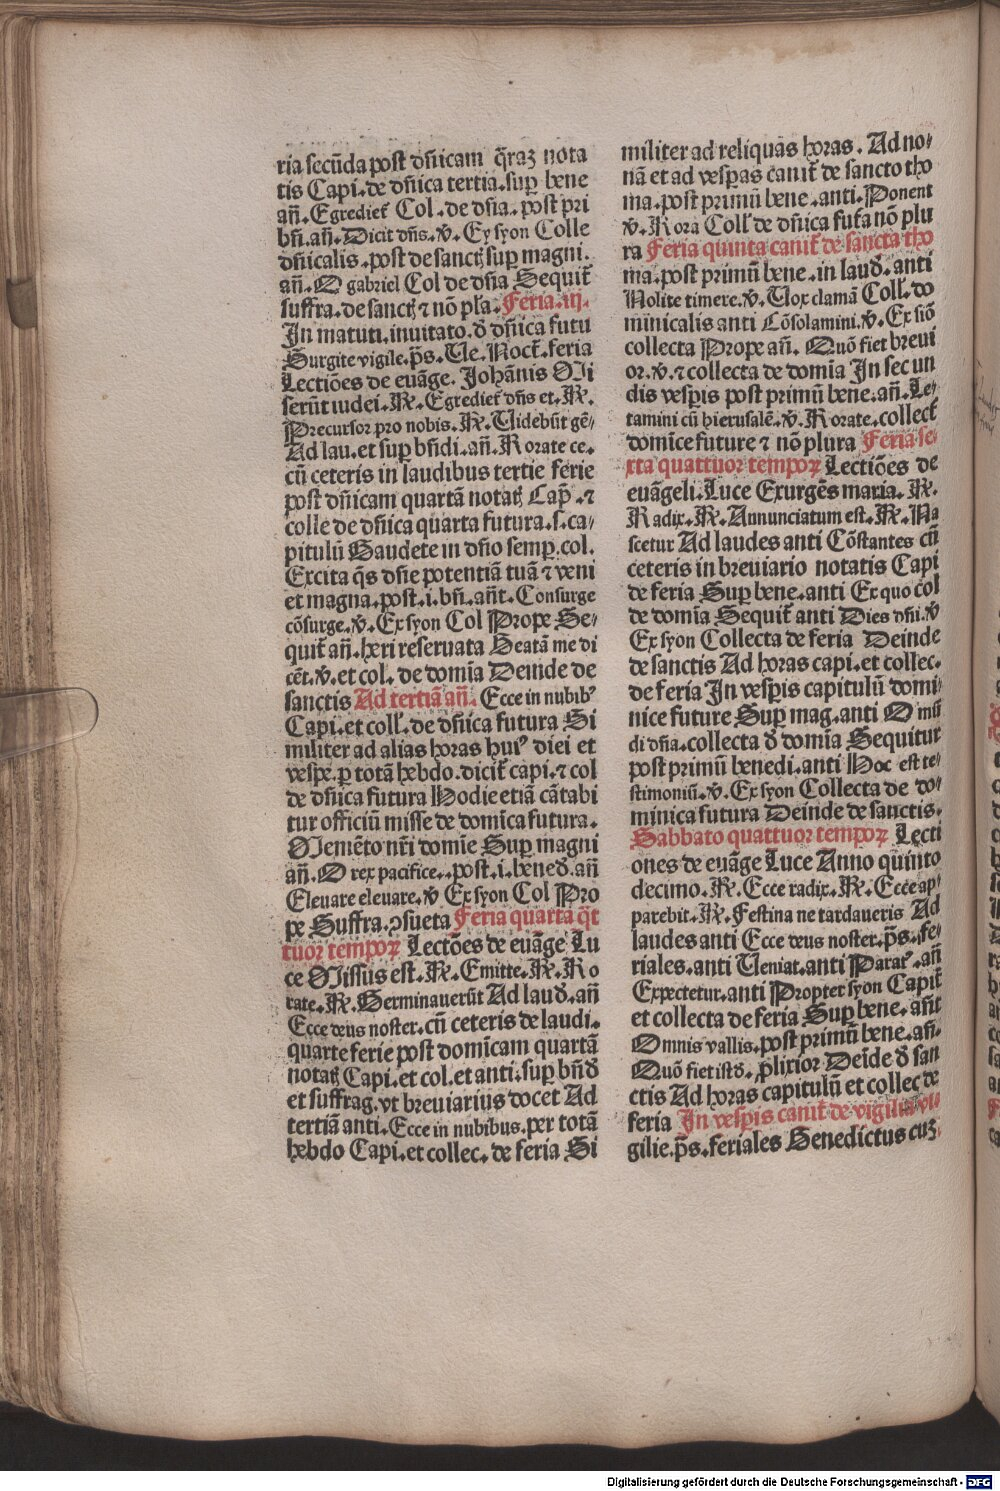 ria secūda post dn̄icam q̄raꝫ nota
tis Capi.de dn̄ica tertia.sup bene
an̄.Egrediet̄ Col.de dn̄ia.post pri
bn̄.an̄.Dicit dn̄s.v̄.Ex syon Colle
dn̄icalis.post de sanctꝭ sup magni.
an̄.O gabriel Col de dn̄ia Sequit̄
suffra.de sanctꝭ ⁊ nō pl̄a.Feria.iij.
In matuti.inuitato.d̄ dn̄ica futu
Surgite vigile.p̄s.Ve.Noct̄.feria
Lectiōes de euāge.Johānis Mi
serūt iudei.R̄.Egrediet̄ dn̄s et.R̄.
Precursor pro nobis.R̄.Videbūt gē-
Ad lau.et sup bn̄di.an̄.Rorate ce.
cū ceteris in laudibus tertie ferie
post dn̄icam quartā notatꝭ Cap̄.⁊
colle de dn̄ica quarta futura.s.ca/
pitulū Gaudete in dn̄o semp.col.
Excita q̄s dn̄e potentiā tuā ⁊ veni
et magna.post.i.bn̄.an̄t.Consurge
cōsurge.v̄.Ex syon Col Prope Se/
quit̄ an̄.heri reseruata Beatā me di
cēt.v̄.et col.de domīa Deinde de
sanctis Ad tertiā an̄.Ecce in nubibꝰ
Capi.et coll̄.de dn̄ica futura Si
militer ad alias horas huiꝰ diei et
vespe.ꝑ totā hebdo.dicit̄ capi.⁊ col
de dn̄ica futura Hodie etiā cātabi
tur officiū misse de domīca futura.
Memēto nr̄i domīe Sup magni
an̄.O rex pacifice..post.i.bened̄.an̄
Eleuare eleuare.v̄ Ex syon Col Pro
pe Suffra.ꝯsueta Feria quarta q̄t
tuor tempoꝝ Lectōes de euāge Lu
ce Missus est.R̄.Emitte.R̄.Ro
rate.R̄.Germinauerūt Ad laud̄.an̄
Ecce deus noster.cū ceteris de laudi.
quarte ferie post domīcam quartā
notatꝭ Capi.et col.et anti.sup bn̄d̄
et suffrag.vt breuiarius docet Ad
tertiā anti.Ecce in nubibus.per totā
hebdo Capi.et collec.de feria Si
militer ad reliquas horas.Ad no/
nā et ad vesp̄as canit̄ de sancto tho
ma.post primū bene.anti.Ponent
v̄.Rora Coll̄ de dn̄ica fut̄a nō plu
ra Feria quinta canit̄ de sancta tho
ma.post primū bene.in laud̄.anti
Nolite timere.v̄.Vox clamā Coll̄.do
minicalis anti Cōsolamini.v̄.Ex siō
collecta Prope an̄.Quō fiet breui
or.v̄.⁊ collecta de domīa In secun
dis vesp̄is post primū bene.an̄.Le-
tamini cū hierusalē.v̄.Rorate.collect̄
domīce future ⁊ nō plura Feria se/
xta quattuor tempoꝝ Lectiōes de
euāgeli.Luce Exurgēs maria.R̄.
Radix.R̄.Annunciatum est.R̄.Na
scetur Ad laudes anti Cōstantes cū
ceteris in breuiario notatis Capi
de feria Sup bene.anti Ex quo col
de domīa Sequit̄ anti Dies dn̄i.v̄
Ex syon Collecta de feria Deinde
de sanctis Ad horas capi.et collec.
de feria In vesp̄is capitulū domi/
nice future Sup mag.anti O mū
di dn̄a.collecta d̄ domīa Sequitur
post primū benedi.anti Hoc est te/
stimoniū.v̄.Ex syon Collecta de do/
minica futura Deinde de sanctis.
Sabbato quattuor tempoꝝ Lecti
ones de euāge Luce Anno quinto
decimo.R̄.Ecce radix.R̄.Ecce ap/
parebit.R̄.Festina ne tardaueris Ad
laudes anti Ecce deus noster.p̄s.fe/
riales.anti Veniat.anti Paratꝰ.an̄
Expectetur.anti Propter syon Capit̄
et collecta de feria Sup bene.an̄t
Omnis vallis.post primū bene.an̄.
Quō fiet istd̄.ꝓlixior Deīde d̄ san
ctis Ad horas capitulū et collec de
feria In vesp̄is canit̄ de vigilia vi/
gilie.p̄s.feriales Benedictus cuꝫ.
Digitalisierung gefördert durch die Deutsche Forschungsgemeinschaft - DFG